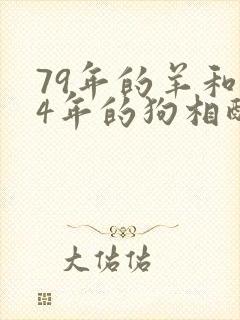 79年的羊和
4年的狗相配
大佑佑